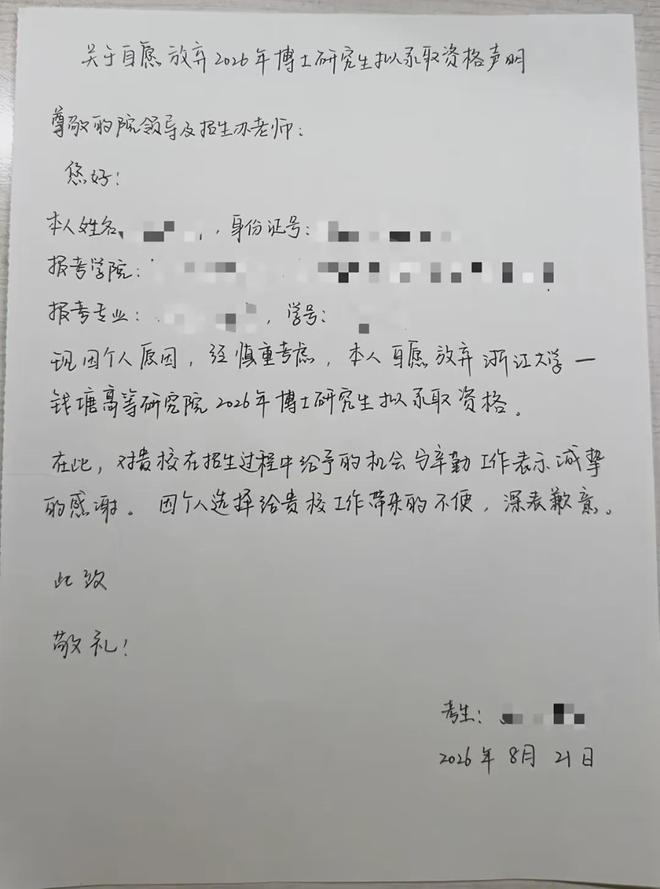 关于自愿放弃2026年博士研究生拟录取资格声明
尊敬的院领导及招生办老师：
您好！
本人姓名，身份证号：
报考学院：
报考专业：，学号：
现因个人原因，经慎重考虑，本人自愿放弃浙江大学一
钱塘高等研究院2026年博士研究生拟录取资格。
在此，对贵校在招生过程中给予的机会与辛勤工作表示诚挚
的感谢。因个人选择给贵校工作带来的不便，深表歉意。
此致
敬礼！
考生：
2026年8月21日